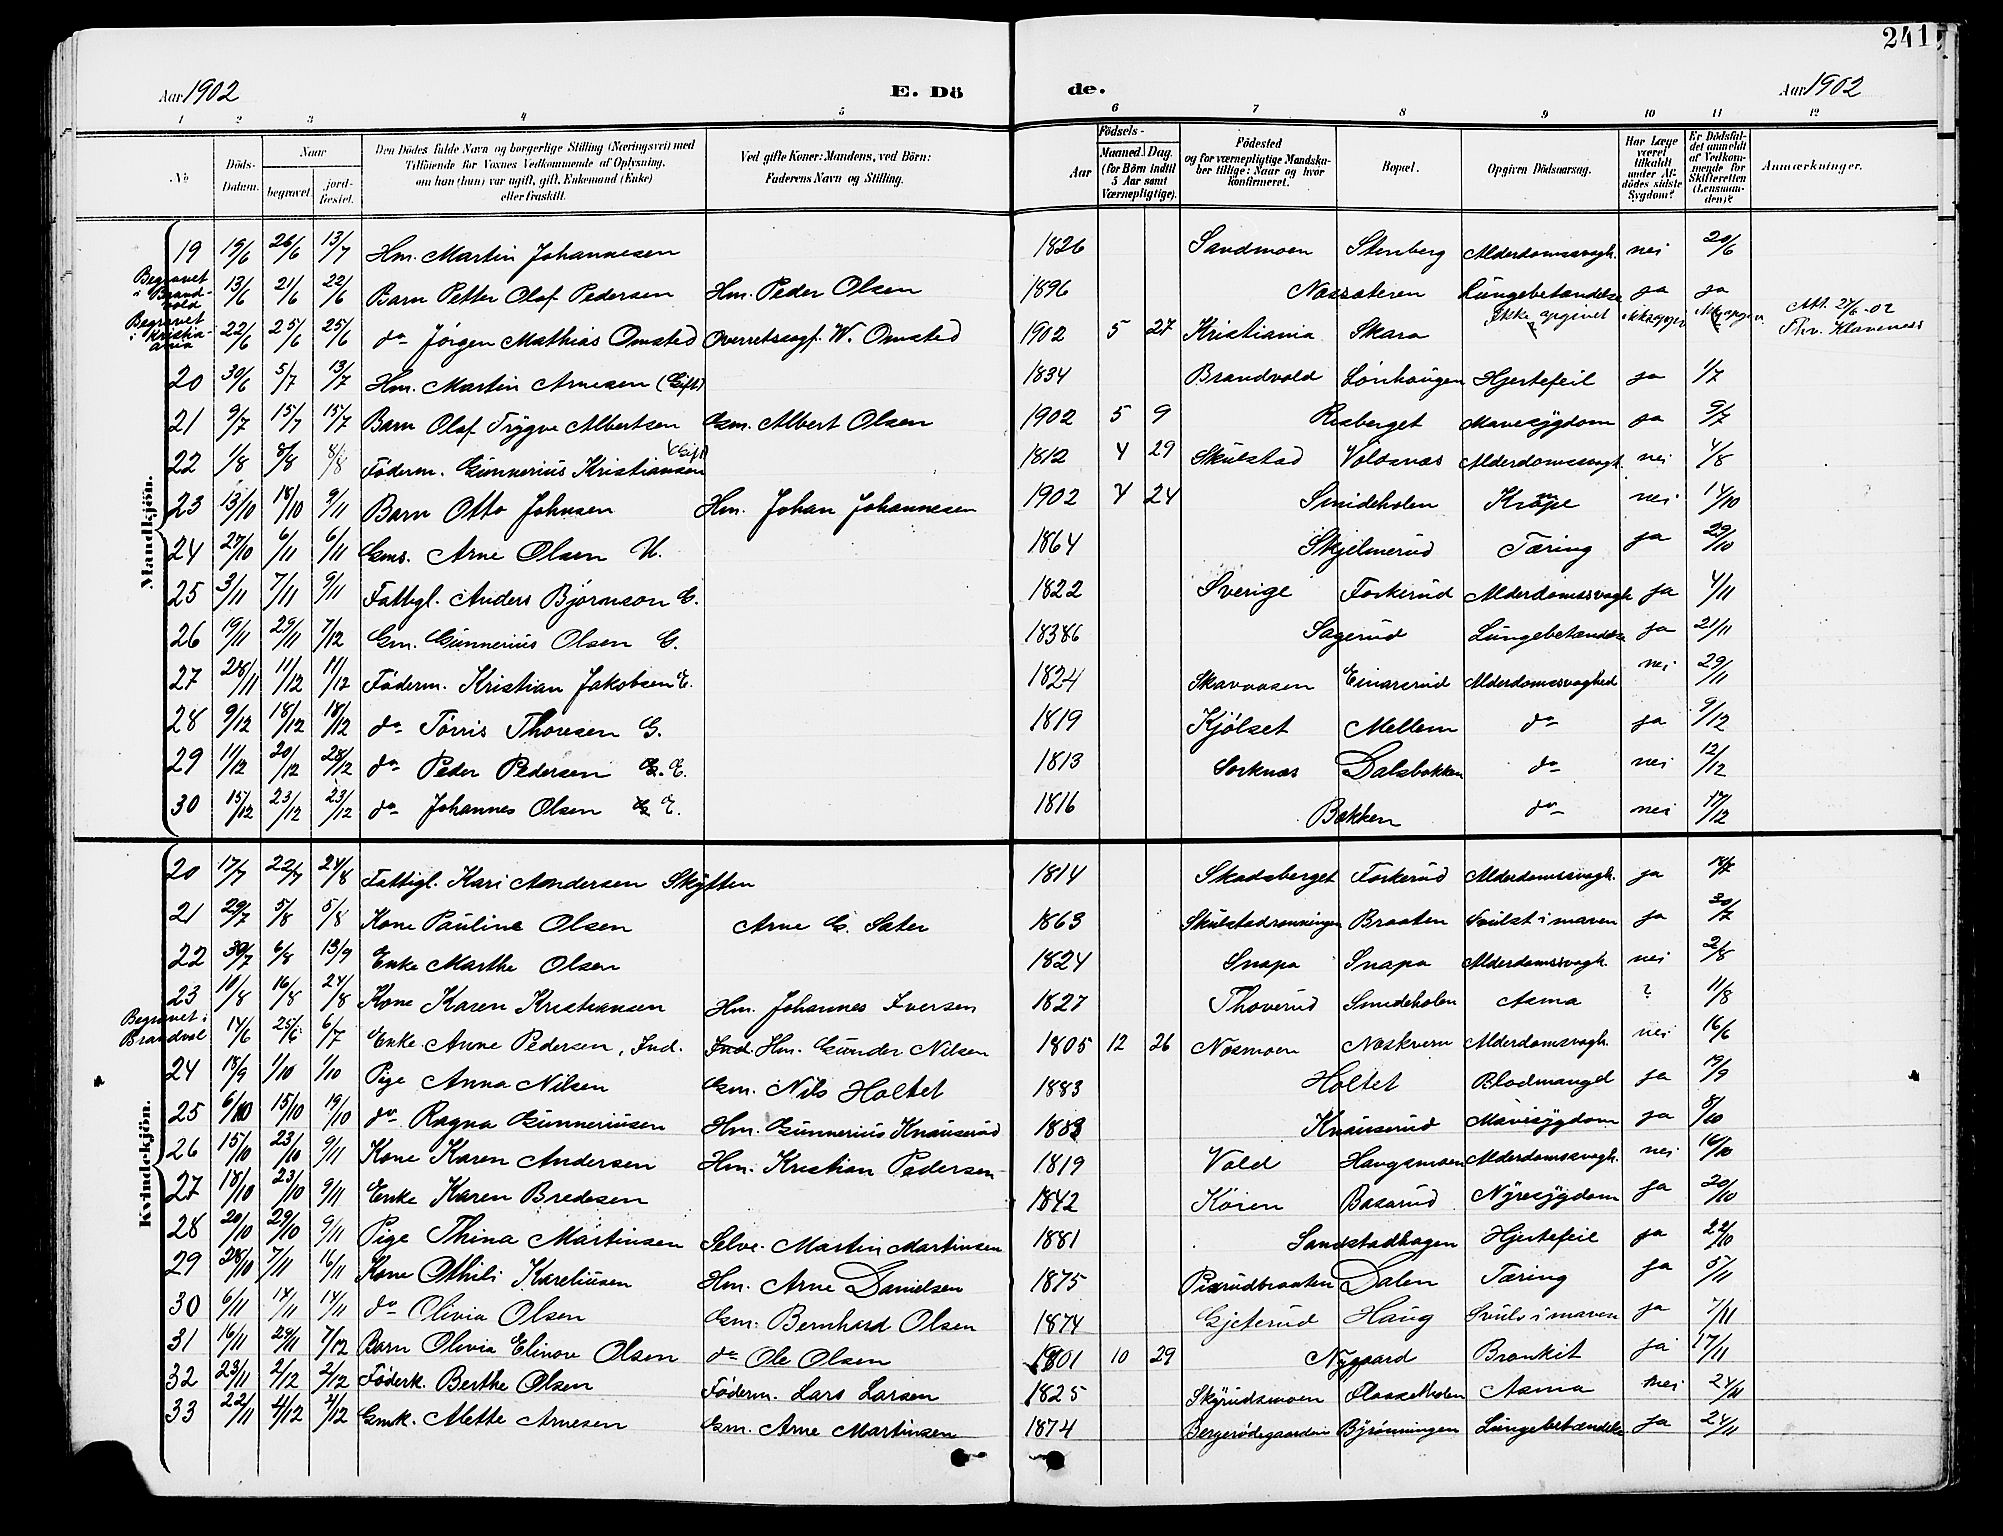 241
Aar 1902 E. Dö de. Aar 1902
1 2 3 4 5 6 7 8 9 10 11 12
No Döds-Datum. Naar begravet jordfæstet. Den Dödes fulde Navn og borgerlige Stilling (Næringsvei) med Tilföiende for Voxnes Vedkommende af Oplysning, om han (hun) var ugift, gift, Enkemand (Enke) eller fraskilt. Ved gifte Koner: Mandens, ved Börn: Faderens Navn og Stilling. Födsels- Aar Maaned. Dag. (for Börn indtil 5 Aar samt Værnepligtige). Födested og for værnepligtige Mandskaber tillige: Naar og hvor konfirmeret. Bopæl. Opgiven Dödsaarsag. Har Læge været tilkaldt under Afdödes sidste Sygdom? Er Dödsfaldet anmeldt af Vedkommende for Skifteretten (Lensmanden)? Anmærkninger.
Mandkjön.
19 19/6 26/6 13/7 Hm. Martin Johannesen 1826 Sandmoen Stenberg Alderdomssvagh. nei 20/6
Begravet i Brandvold 13/6 21/6 22/6 Barn Petter Olaf Pedersen Hm. Peder Olsen 1896 Næssæteren Lungebetændelse ja ja
Begravet i Kristiania 22/6 25/6 25/6 do Jörgen Mathias Omsted Overretssagf. W. Omsted 1902 5 27 Kristiania Skara Ikke opgivet Att. 27/6-02 Thv. Klaveness
20 30/6 5/7 13/7 Hm. Martin Arnesen (Gift) 1834 Brandvold Lönhaugen Hjertefeil ja 1/7
21 9/7 15/7 15/7 Barn Olaf Trygve Albertsen Gm. Albert Olsen 1902 5 9 Risberget Mavesygdom ja 9/7
22 1/8 8/8 8/8 Föderm. Gunnerius Kristiansen (Gift) 1812 4 29 Skulstad Voldsnæs Alderdomssvagh. nei 4/8
23 13/10 18/10 9/11 Barn Otto Johnsen Hm. Johan Johannesen 1902 7 24 Smideholen Krampe nei 14/10
24 27/10 6/11 6/11 Gms. Arne Olsen U. 1864 Skjelmerud Tæring ja 29/10
25 3/11 7/11 9/11 Fattigl. Anders Björnson E. 1822 Sverige Forkerud Alderdomssvagh ja 4/11
26 19/11 29/11 7/12 Gm. Gunnerius Olsen G. 18386 Sagerud Lungebetændelse ja 21/11
27 28/11 11/12 11/12 Föderm. Kristian Jakobsen E. 1824 Skavaasen Einarsrud Alderdomssvaghed nei 29/11
28 9/12 18/12 18/12 do Törris Thoresen G. 1819 Kjölset Mellem do ja 9/12
29 11/12 20/12 28/12 do Peder Pedersen E. 1813 Sorknæs Dalsbakken do nei 12/12
30 15/12 23/12 23/12 do Johannes Olsen E. 1816 Bakken do nei 17/12
Kvindekjön.
20 17/7 22/7 24/8 Fattigl. Kari Andersen Skytten 1814 Skadsberget Forkerud Alderdomssvagh. ja 18/7
21 29/7 5/8 5/8 Kone Pauline Olsen Arne G. Sæter 1863 Skulstadrönningen Braaten Svulst i maven ja 30/7
22 30/7 6/8 13/9 Enke Marthe Olsen 1824 Snapa Snapa Alderdomssvagh. nei 2/8
23 10/8 16/8 24/8 Kone Karen Kristiansen Hm. Johannes Iversen 1827 Thoverud Smideholen Asma ? 11/8
Begravet i Brandvol 14/6 25/6 6/7 Enke Anne Pedersen, Ind. Ind. Hm. Gunder Nilsen 1805 12 26 Nosmoen Noskvern Alderdomsvagh. nei 16/6
24 18/9 1/10 1/10 Pige Anna Nilsen Gm. Nils Holtet 1883 Holtet Blodmangel ja 19/9
25 6/10 15/10 19/10 do Ragna Gunneriusen Hm. Gunnerius Knauserud 1883 Knauserud Mavesygdom ja 8/10
26 15/10 23/10 9/11 Kone Karen Andersen Hm. Kristian Pedersen 1819 Vold Haugsmoen Alderdomssvagh. nei 16/10
27 18/10 23/10 9/11 Enke Karen Bredesen 1842 Köien Basarud Nyresygdom ja 20/10
28 20/10 29/10 9/11 Pige Thina Martinsen Selve. Martin Martinsen 1881 Sandstadhagen Hjertefeil ja 22/10
29 28/10 7/11 16/11 Kone Othili Kareliusen Hm. Arne Danielsen 1875 Pisrudbraaten Dalen Tæring ja 5/11
30 6/11 14/11 14/11 do Olivia Olsen Gm. Bernhard Olsen 1874 Gjeterud Haug Svuls i maven ja 7/11
31 16/11 29/11 7/12 Barn Olivia Elinore Olsen do Ole Olsen 1901 10 29 Nygaard Bronkit ja 17/11
32 23/11 2/12 2/12 Föderk. Berthe Olsen Föderm. Lars Larsen 1825 Skyrudsmoen Flaasetholen Asma nei 24/11
33 22/11 4/12 4/12 Gmk. Mette Arnesen Gm. Arne Martinsen 1874 Bergerödegaarden Byrönningen Lungebetændelse ja 24/11